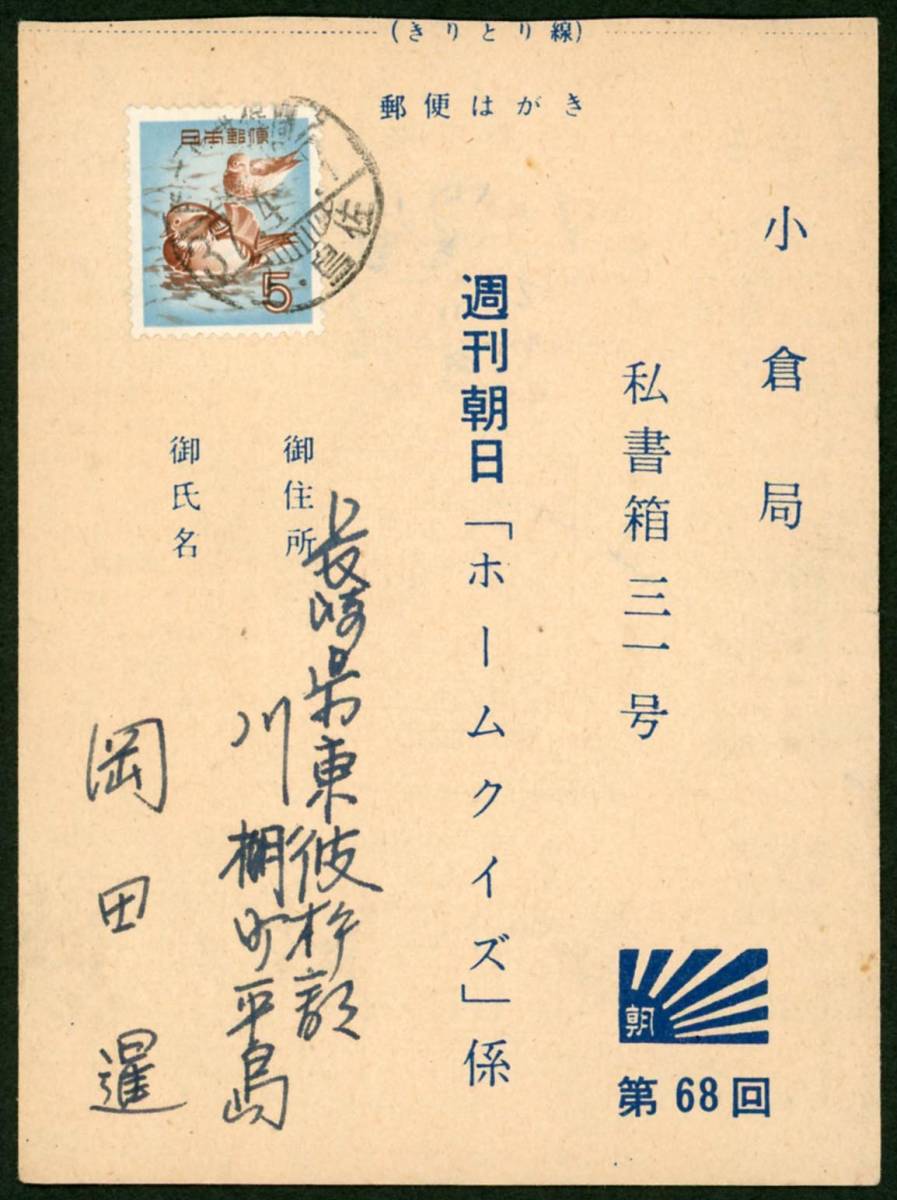 (きりとり線)
郵便はがき
日本郵便
5
小倉局
私書箱三一号
週刊朝日「ホームクイズ」係
御住所
長崎県東彼杵郡
川棚町平島
御氏名
岡田暹
朝
第68回